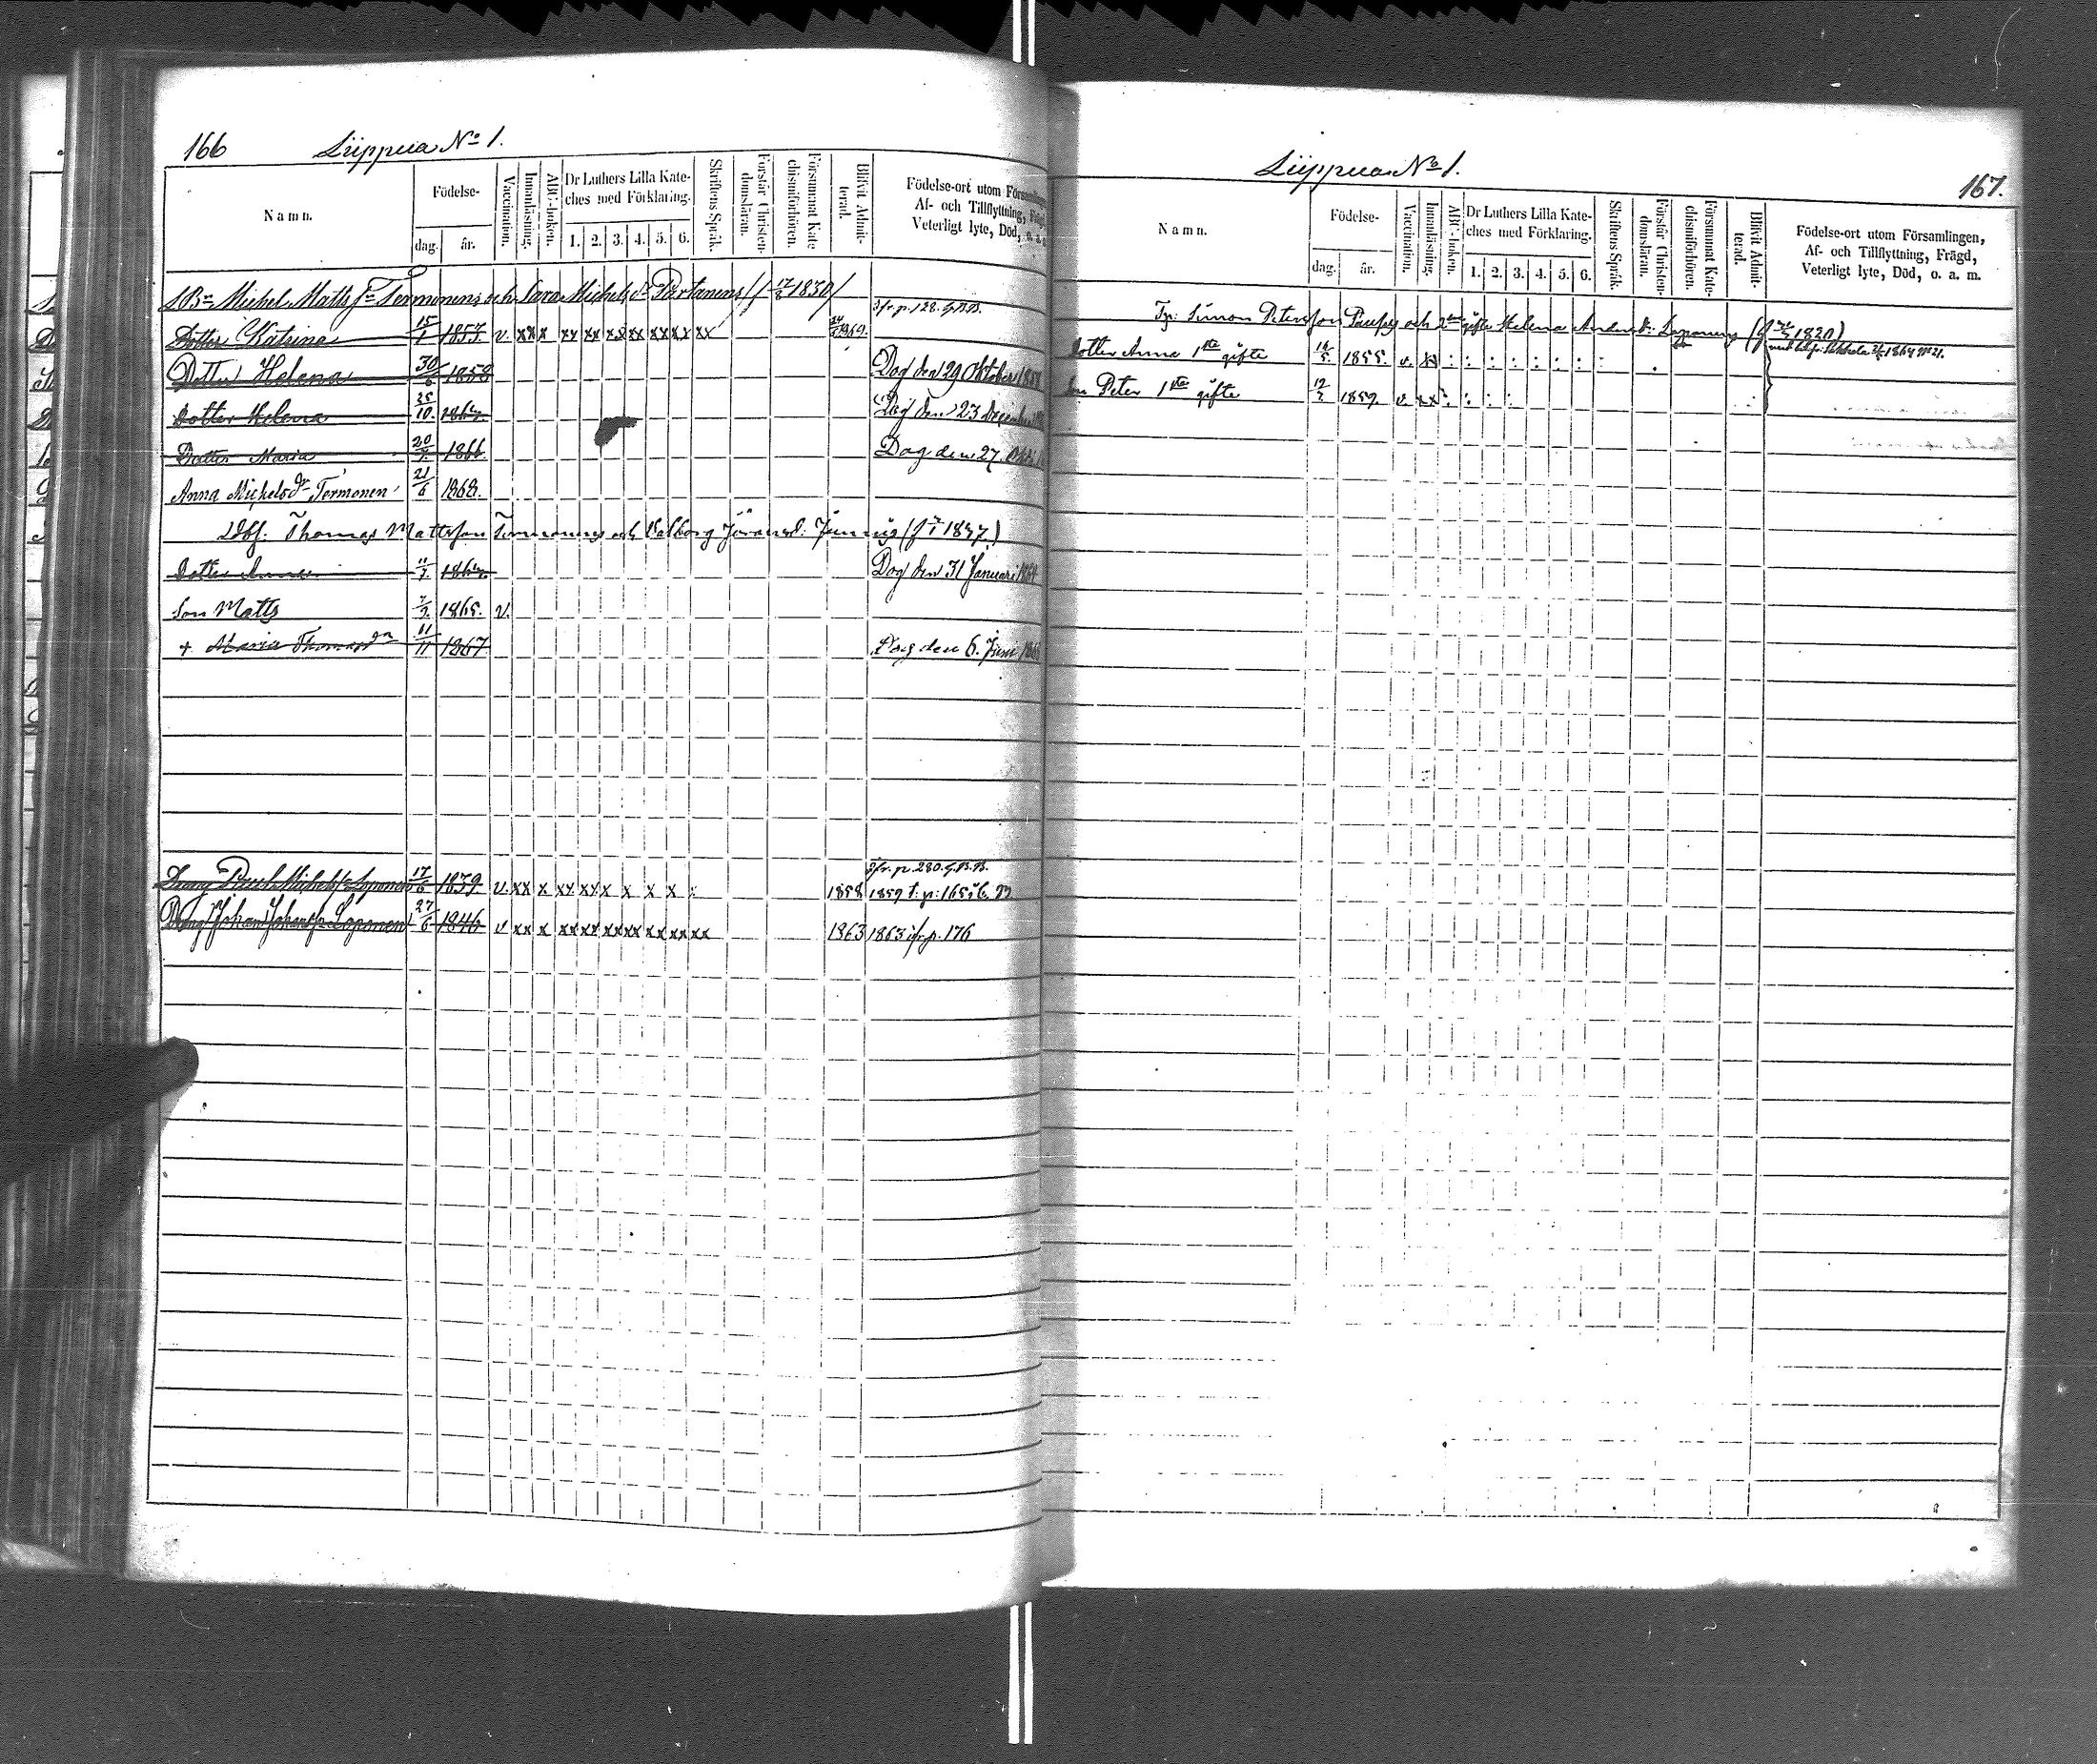 166 Liippua No 1.
Namn. Födelse- dag. år. Vaccination. Innanläsning. ABC-boken. Dr Luthers Lilla Kate-ches med Förklaring. 1. 2. 3. 4. 5. 6. Skriftens Språk. Förstår Christen-domsläran. Försummat Kate-chismiförhören. Blifvit Admit-terad. Födelse-ort utom Församlingen, Af- och Tillflyttning, Frägd, Veterligt lyte, Död, o. a. m.
Michel Matts Sn Termonens och Sara Michels dr Partanens (f 12/8 1830)
Dotter Katrina 15/1 1857. v. xx x xx xx xx xx xx xx xx 1869. Ifr. p. 128.
Dotter Helena 30/6 1858 Dog den 29 Oktober
Dotter Helena 25/10 1864. Dog den 23 December
Dotter Maria 20/7. 1866. Dog den 27.
Anna Michelsdr Termonen 21/6 1868.
Thomas Mattsson Termonens och Valborg (f 1837.)
Dotter 11/7. 1864. Dog den 31 Januari
Son Matts 1865. v.
+ Maria Thomasdr 11/11 1867 Dog den 6. Juni
Ifr. p. 280.
Dreng Michelss. Loponen 17/6 1839. v. xx x xx xx x x x x : 1858 1859 t. p. 165
Dreng Johan Johanss. Loponen 27/6 1846 v xx x xx xx xx xx xx xx xx 1863 1863 ifr p. 176
Liippua No 1. 167.
Namn. Födelse- dag. år. Vaccination. Innanläsning. ABC-boken. Dr Luthers Lilla Kate-ches med Förklaring. 1. 2. 3. 4. 5. 6. Skriftens Språk. Förstår Christen-domsläran. Försummat Kate-chismiförhören. Blifvit Admit-terad. Födelse-ort utom Församlingen, Af- och Tillflyttning, Frägd, Veterligt lyte, Död, o. a. m.
Simon Petersson och 2dra gifte Helena Anders dr: Loponens (f 1820)
Dotter Anna 1sta gifte 16/5. 1855. v. xx : : : : : : : :
Son Peter 1sta gifte 12/2 1859. v. xx : : : :